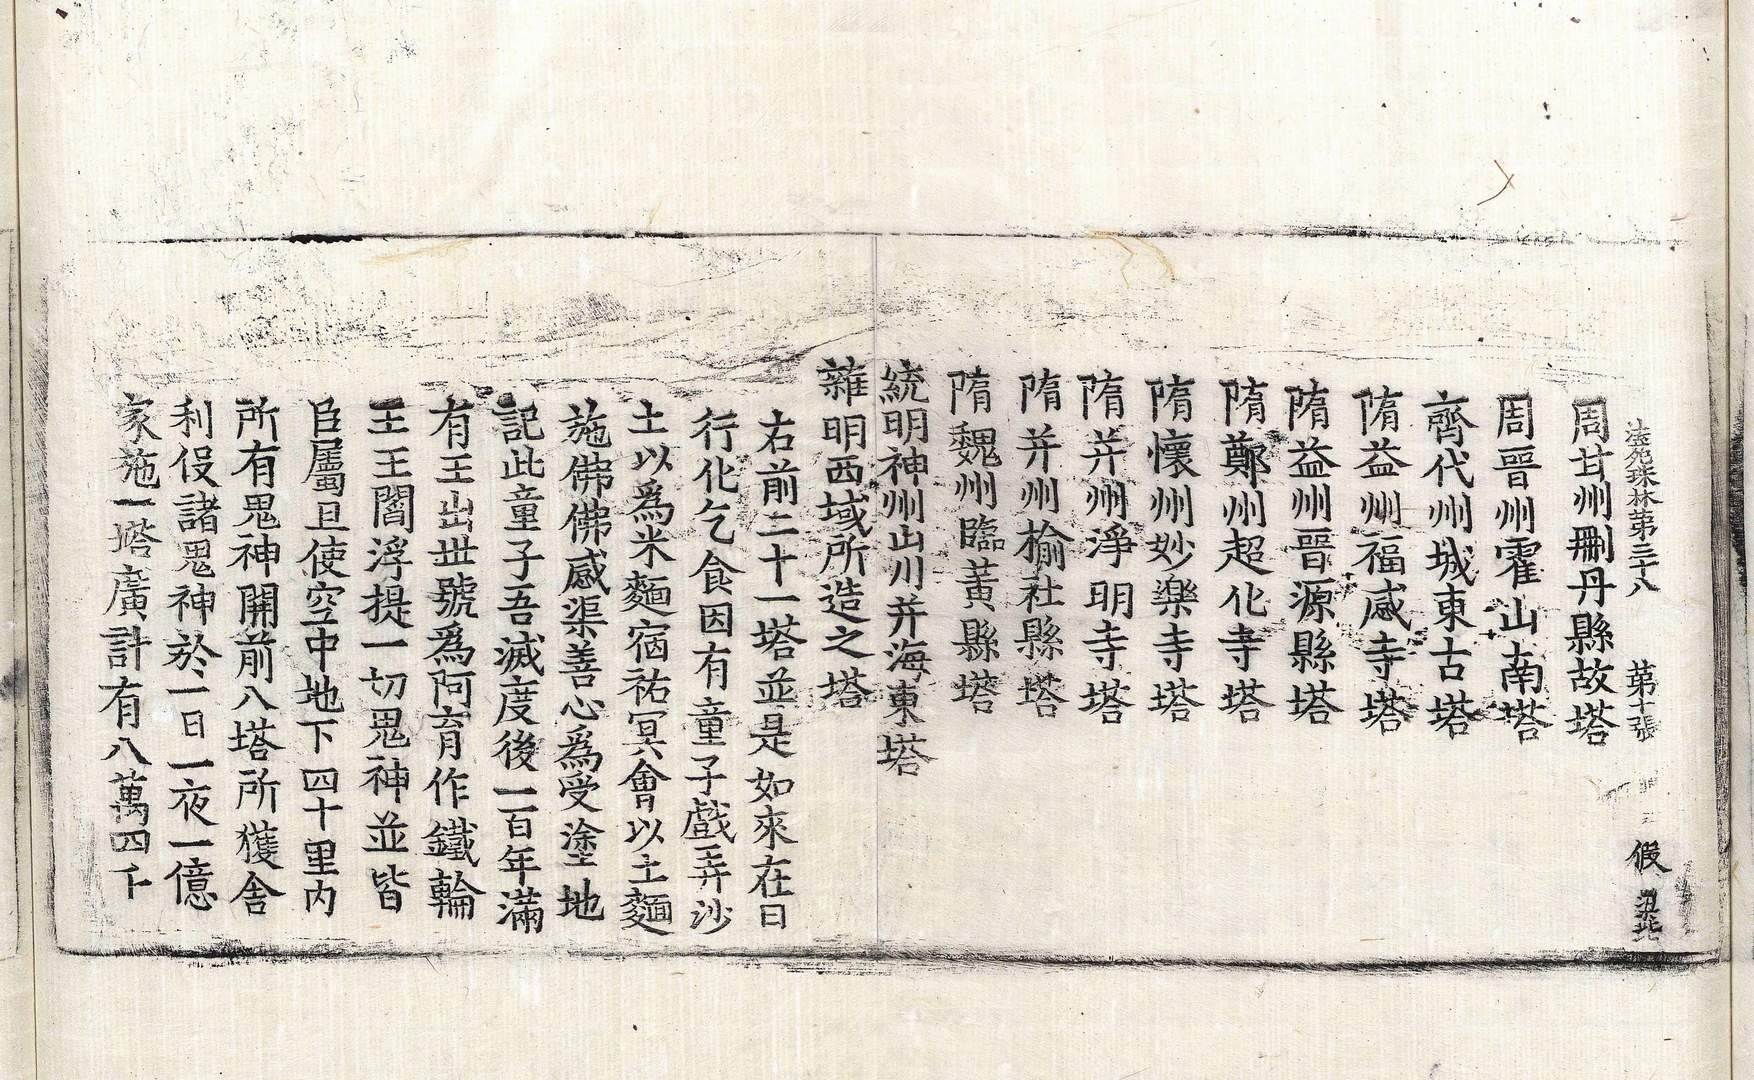 法苑珠林第三十八 第十張 假
周甘州刪丹縣故塔
周晉州霍山南塔
齊代州城東古塔
隋益州福感寺塔
隋益州晉源縣塔
隋鄭州超化寺塔
隋懷州妙樂寺塔
隋并州淨明寺塔
隋并州榆社縣塔
隋魏州臨黃縣塔
統明神州山川并海東塔
雜明西域所造之塔
右前二十一塔並是如來在日
行化乞食因有童子戲弄沙
土以為米麵宿祐冥會以土麵
施佛佛感渠善心為受塗地
記此童子吾滅度後一百年滿
有王出世號為阿育作鐵輪
王王閻浮提一切鬼神並皆
臣屬且使空中地下四十里內
所有鬼神開前八塔所獲舍
利役諸鬼神於一日一夜一億
家施一塔廣計有八萬四千